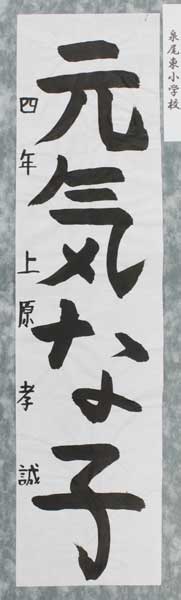 泉尾東小学校
元気な子
四年 上原孝誠